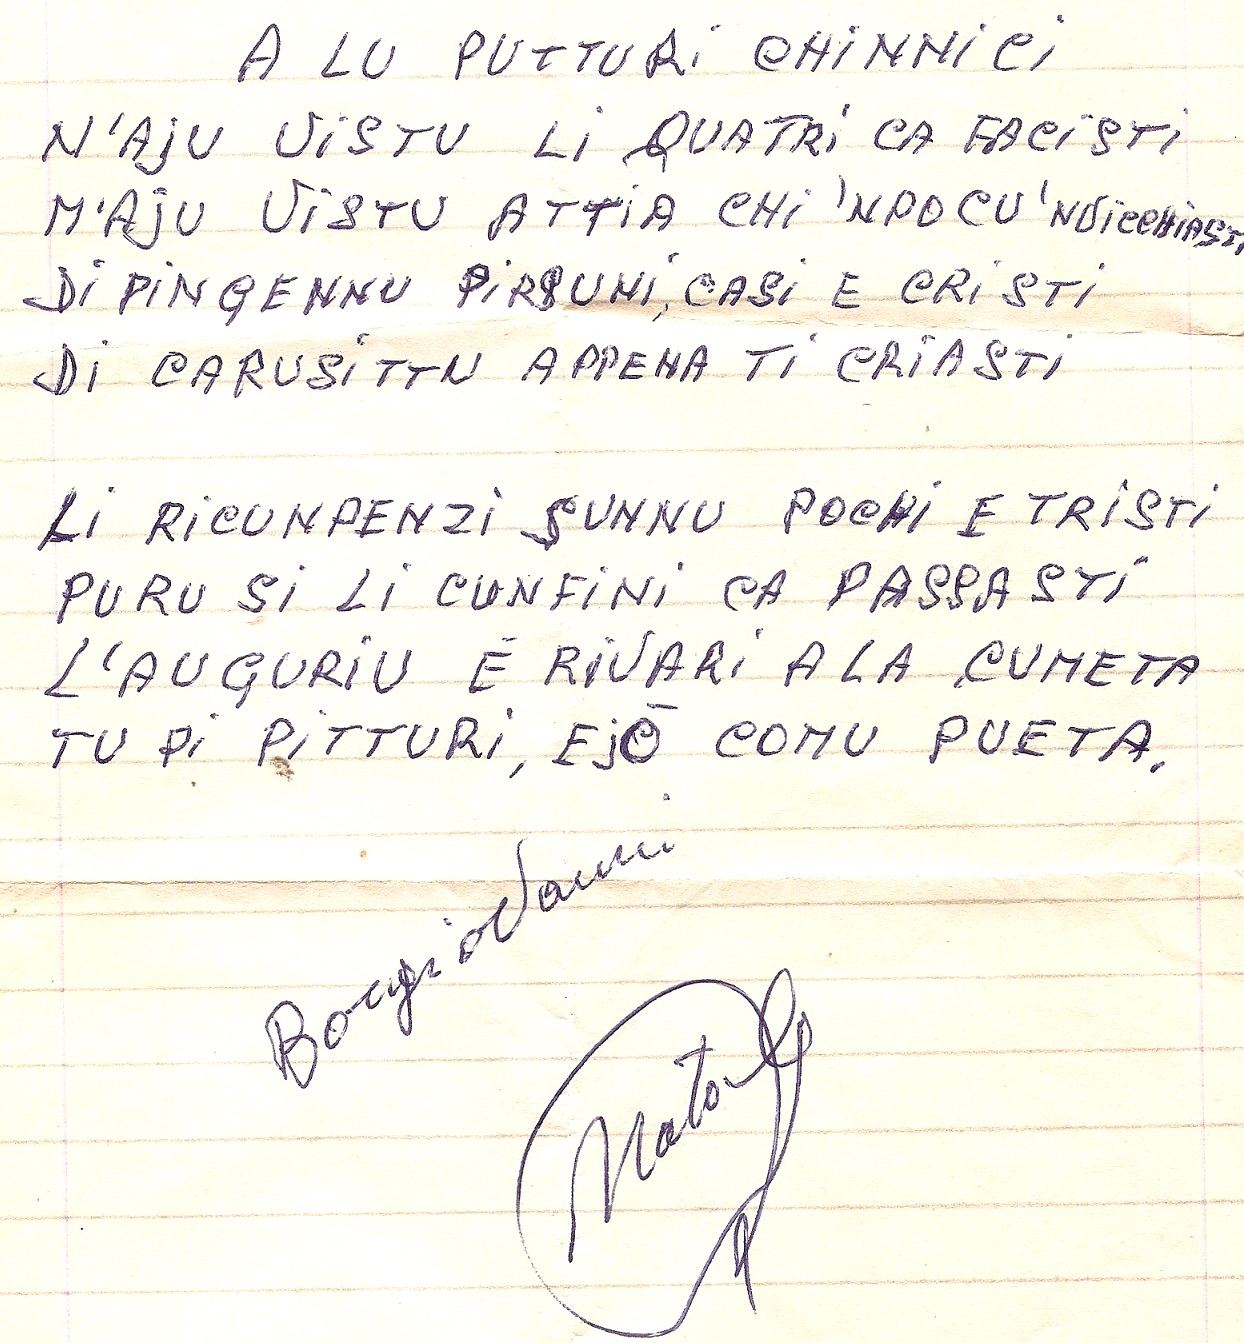 A LU PUTTURI CHINNICI
N'AJU VISTU LI QUATRI CA FACISTI
M'AJU VISTU ATTIA CHI 'NPOCU 'NVICCHIASTI
DIPINGENNU PIRSUNI, CASI E CRISTI
DI CARUSITTU APPENA TI CRIASTI
LI RICUNPENZI SUNNU POCHI E TRISTI
PURU SI LI CUNFINI CA PASSASTI
L'AUGURIU È RIVARI A LA CUMETA
TU PI PITTURI, E JÒ COMU PUETA.
Borgiovanni